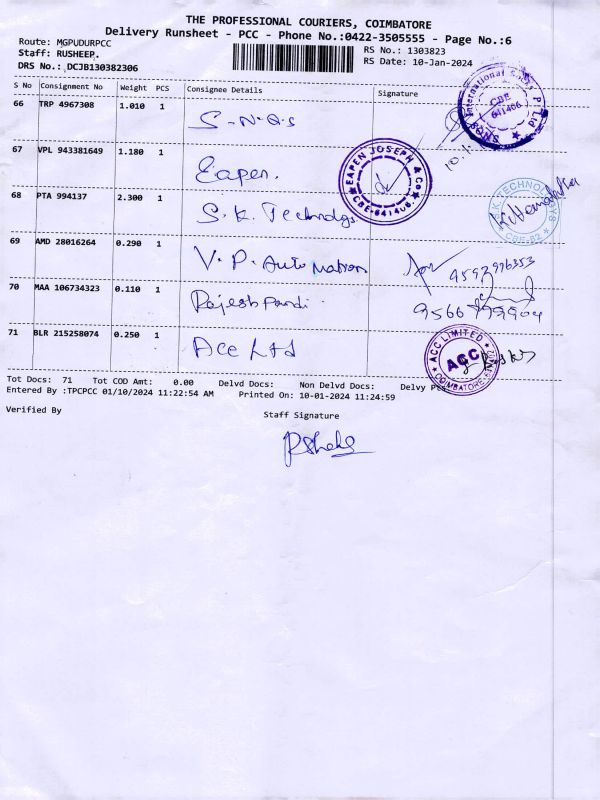 THE PROFESSIONAL COURIERS, COIMBATORE
Delivery Runsheet - PCC - Phone No.:0422-3505555 - Page No.:6
Route: MGPUDURPCC
Staff: RUSHEEP.
DRS No.: DCJB130382306
RS No.: 1303823
RS Date: 10-Jan-2024
S No Consignment No Weight PCS Consignee Details Signature
66 TRP 4967308 1.010 1 S-N-Q-S
International P Ltd CBE 641406 SNQS
10.1.
67 VPL 943381649 1.180 1 Eapen.
EAPEN JOSEPH & Co CBE-641406.
68 PTA 994137 2.300 1 S.K. Technolgs
S.K. TECHNOLOGYS CBE
69 AMD 28016264 0.290 1 V.P. Automation
9597976353
70 MAA 106734323 0.110 1 Rajesh pandi.
9566799904
71 BLR 215258074 0.250 1 Acc Ltd
ACC LIMITED ACC COIMBATORE
Tot Docs: 71 Tot COD Amt: 0.00 Delvd Docs: Non Delvd Docs: Delvy Pts
Entered By :TPCPCC 01/10/2024 11:22:54 AM Printed On: 10-01-2024 11:24:59
Verified By
Staff Signature